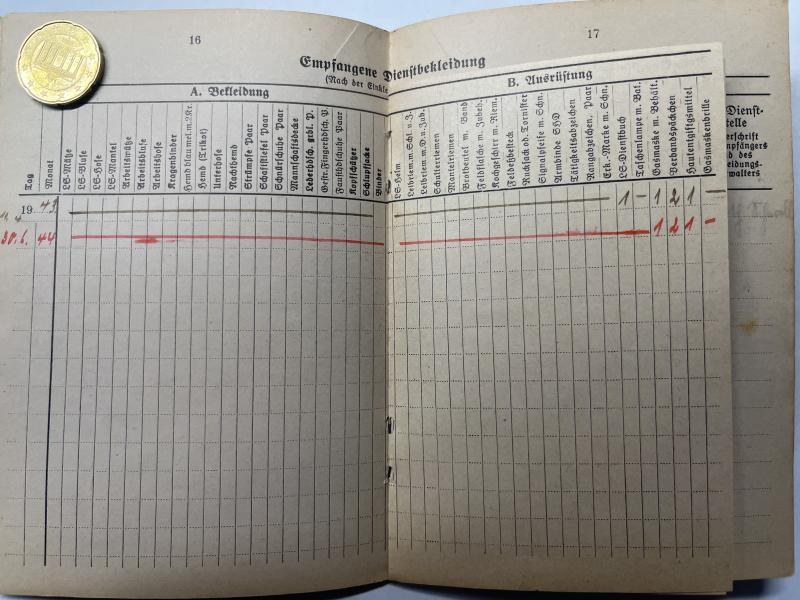 16
17
Empfangene Dienstbekleidung
(Nach der Einkle
A. Bekleidung
B. Ausrüstung
Tag
Monat
LS-Mütze
LS-Bluse
LS-Hose
LS-Mantel
Arbeitsmütze
Arbeitsbluse
Arbeitshose
Kragenbinder
Hemd blau mel. m. 2 Kr.
Hemd (Trikot)
Unterhose
Nachthemd
Strümpfe Paar
Schaftstiefel Paar
Schnürschuhe Paar
Mannschaftsdecke
Lederhdsch. grbl. P.
Gestr. Fingerhdsch. P.
Fausthdschuhe Paar
Kopfschützer
Schlupfjacke
Binder
LS-Helm
Leibriem. m. Schl. u. Z.
Leibriem. m. D. u. Zub.
Schulterriemen
Mantelriemen
Brotbeutel m. Band
Feldflasche m. Zubeh.
Kochgeschirr m. Riem.
Feldeßbesteck
Rucksack od. Tornister
Signalpfeife m. Schn.
Armbinde SHD
Tätigkeitsabzeichen
Rangabzeichen, Paar
Erk.-Marke m. Schn.
LS-Dienstbuch
Taschenlampe m. Bat.
Gasmaske m. Behält.
Verbandspäckchen
Hautentgiftgsmittel
Gasmaskenbrille
Dienst-
telle
erschrift
mpfängers
d des
eidungs-
walters
19 43 — 1 – 1 2 1 —
30. 6. 44 — 1 2 1 –